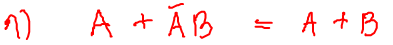 n) A + ĀB = A + B